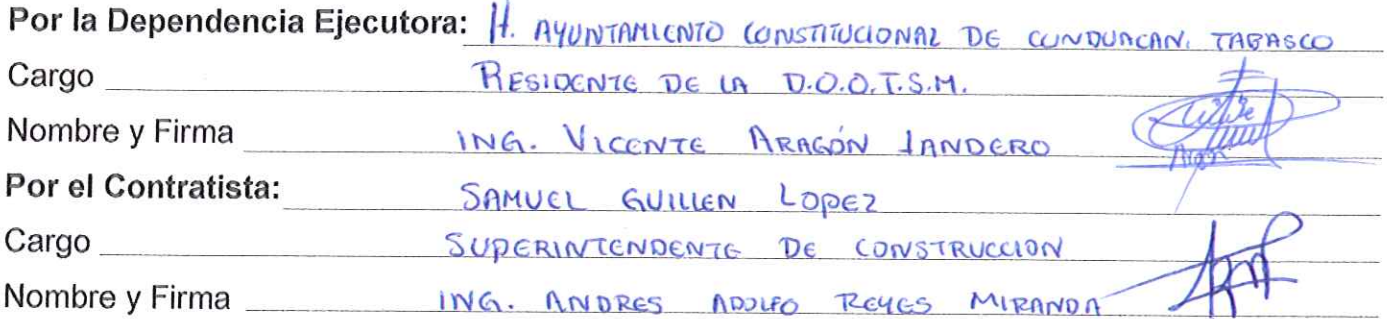 Por la Dependencia Ejecutora: H. AYUNTAMIENTO CONSTITUCIONAL DE CUNDUACAN. TABASCO
Cargo RESIDENTE DE LA D.O.O.T.S.M.
Nombre y Firma ING. VICENTE ARAGÓN LANDERO
Por el Contratista: SAMUEL GUILLEN LOPEZ
Cargo SUPERINTENDENTE DE CONSTRUCCION
Nombre y Firma ING. ANDRES ADOLFO REYES MIRANDA